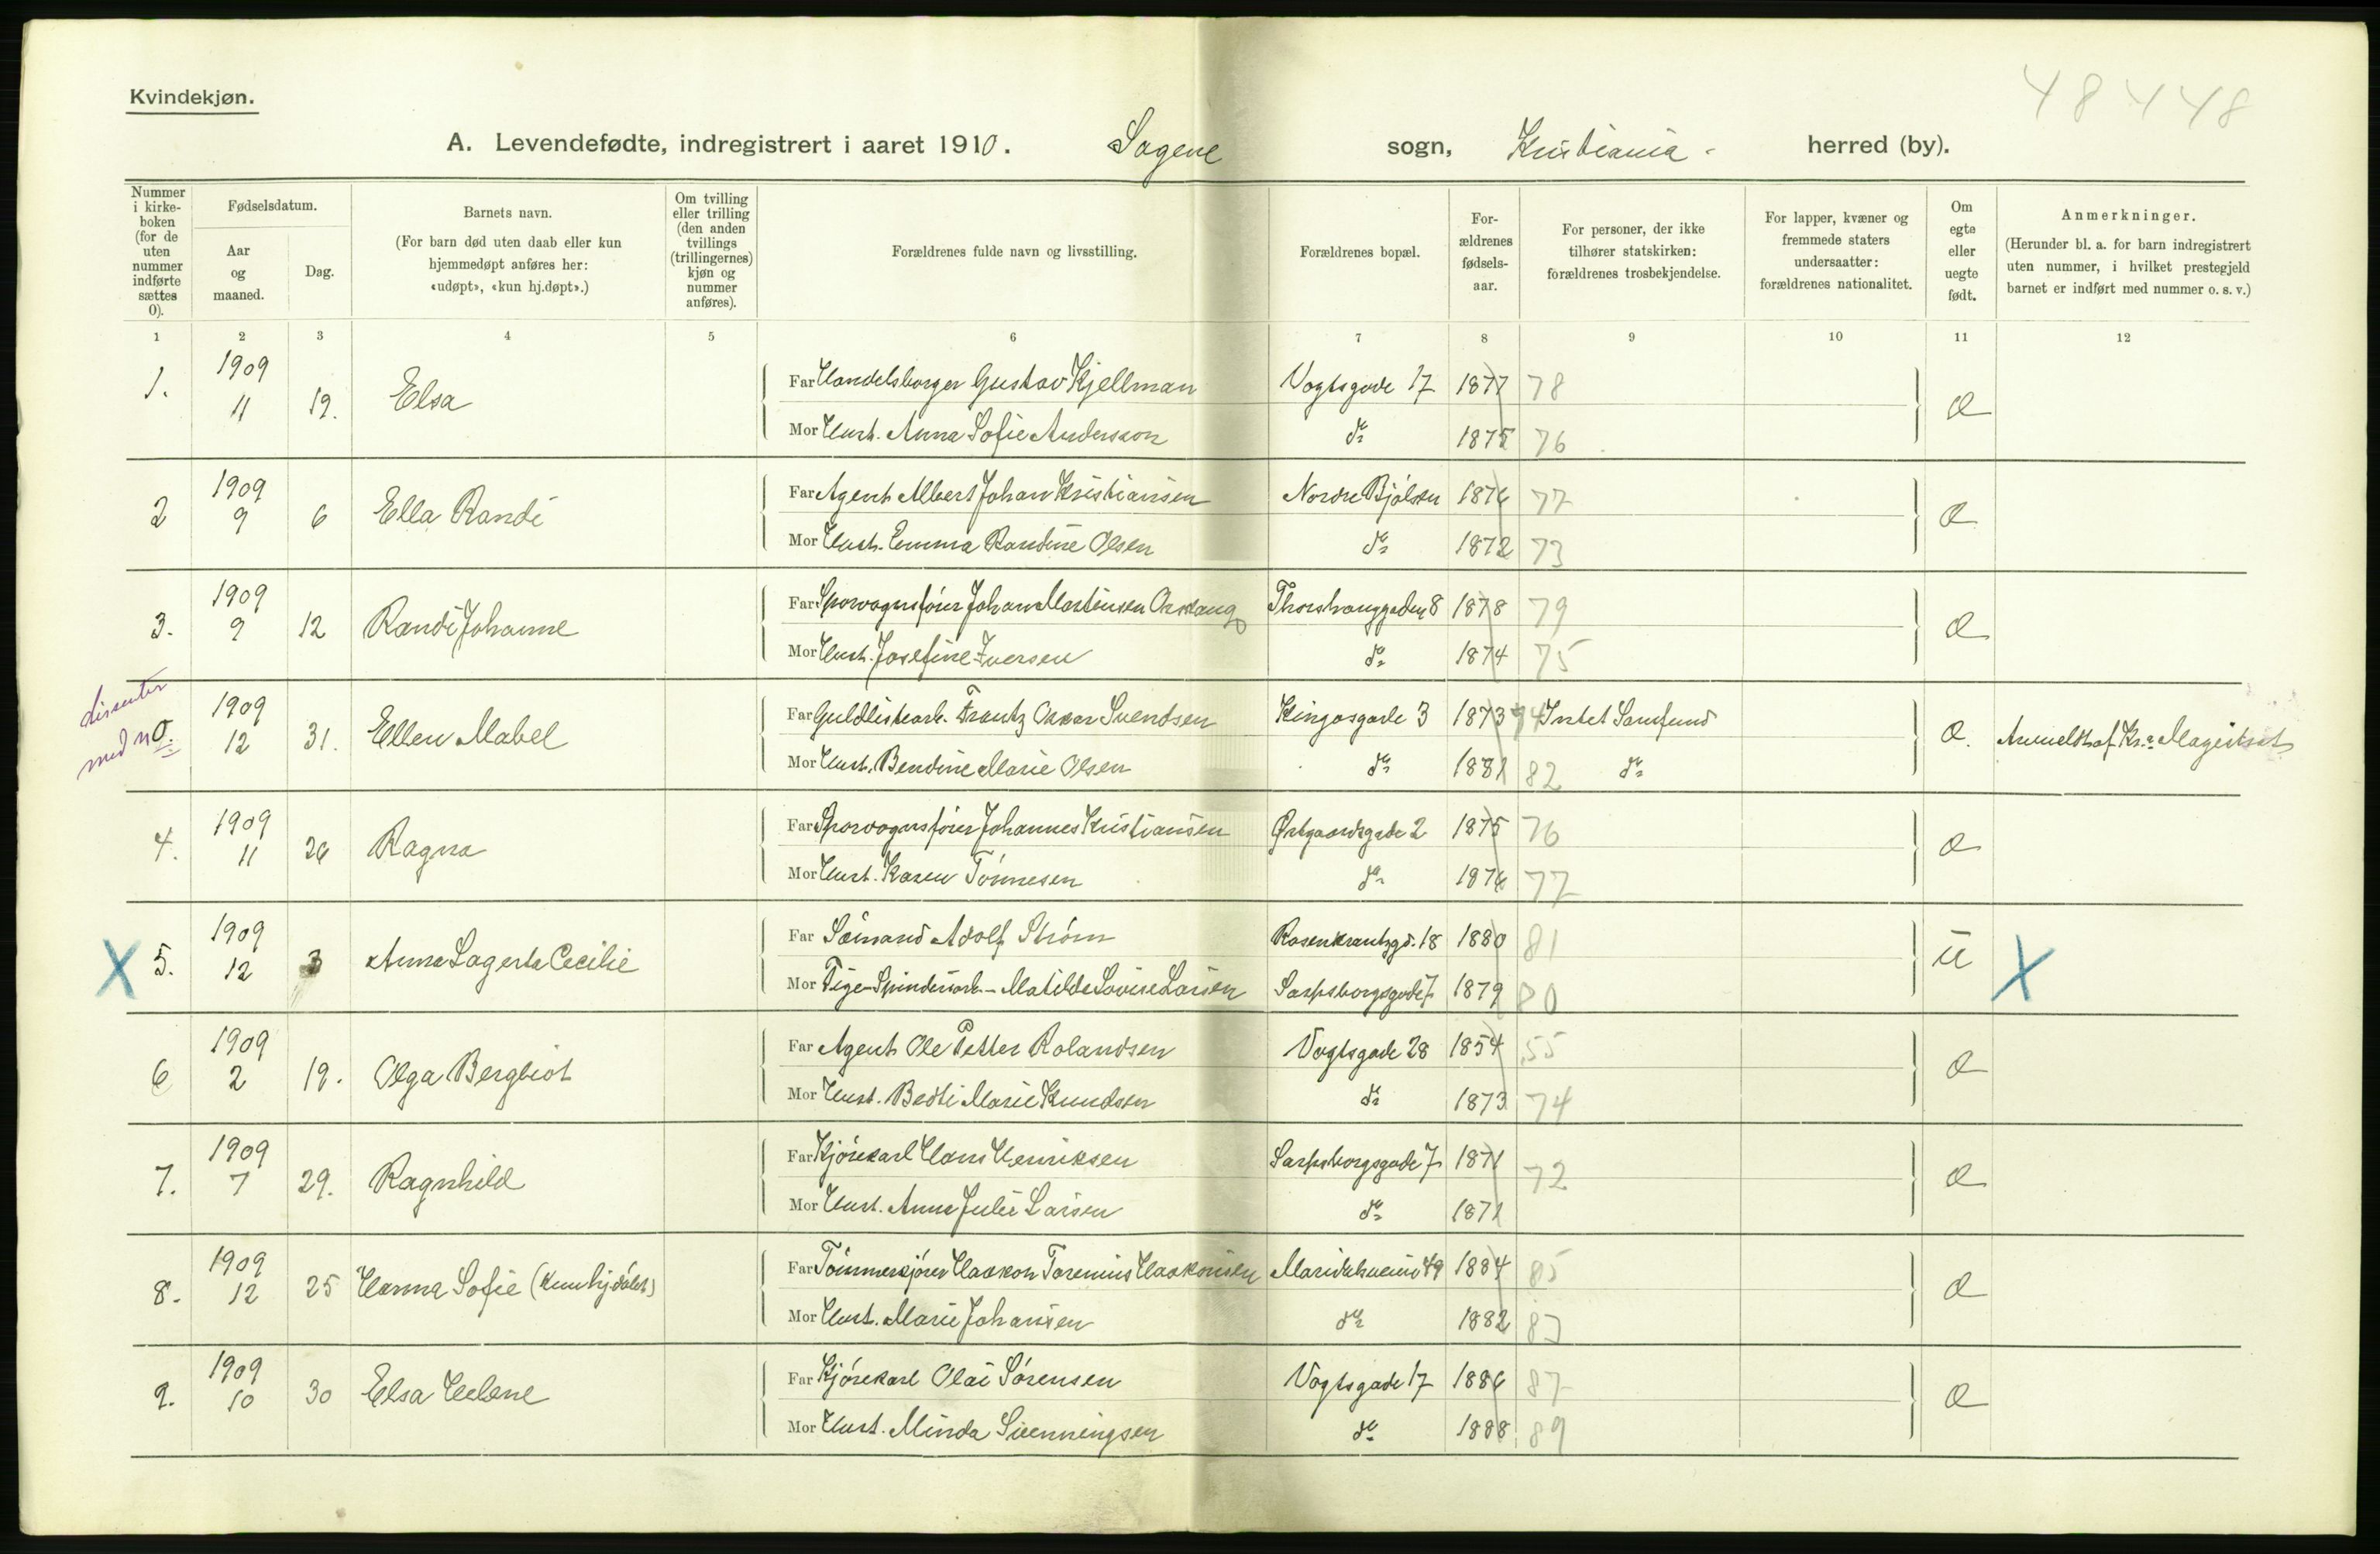 48448
Kvindekjøn.
A. Levendefødte, indregistrert i aaret 1910. Sagene sogn, Kristiania herred (by).
Nummer i kirke-boken (for de uten nummer indførte sættes 0).
Fødselsdatum.
Aar og maaned.
Dag.
Barnets navn.
(For barn død uten daab eller kun hjemmedøpt anføres her: «udøpt», «kun hj.døpt».)
Om tvilling eller trilling (den anden tvillings (trillingernes) kjøn og nummer anføres).
Forældrenes fulde navn og livsstilling.
Forældrenes bopæl.
For-ældrenes fødsels-aar.
For personer, der ikke tilhører statskirken: forældrenes trosbekjendelse.
For lapper, kvæner og fremmede staters undersaatter: forældrenes nationalitet.
Om egte eller uegte født.
Anmerkninger.
(Herunder bl. a. for barn indregistrert uten nummer, i hvilket prestegjeld barnet er indført med nummer o. s. v.)
1 2 3 4 5 6 7 8 9 10 11 12
1. 1909 11 19. Elsa
Far Handelsborger Gustav Kjellman Vogtsgade 17 1877 78
Mor Hust. Anna Sofie Andersson do 1875 76
Æ
2 1909 9 6 Ella Randi
Far Agent Albert Johan Kristiansen Nordre Bjølsen 1876 77
Mor Hust. Emma Randine Olsen do 1872 73
Æ
3. 1909 9 12 Randi Johanne
Far Sporvognsfører Johan Martinsen 1878 79
Mor Hust. Josefine Iversen do 1874 75
Æ
dissenter med n 0. 1909 12 31. Ellen Mabel
Far Guldlistearb. Frantz Oskar Svendsen Kingosgade 3 1873 74 Intet Samfund
Mor Hust. Bendine Marie Olsen do 1881 82 do
Æ. Anmeldt af Kr.a Magistrat
4. 1909 11 26 Ragna
Far Sporvognsfører Johannes Kristiansen Østgaardsgade 2 1875 76
Mor Hust. Karen Tønnesen do 1876 77
Æ
X 5. 1909 12 3 Anna Lagerta Cecilie
Far Sømand Adolf Strøm Rosenkrantzgd. 18 1880 81
Mor Pige - Spinderiarb. - Matilde Lovise Larsen Sarpsborgsgade 7 1879 80
U X
6 1909 2 19. Olga Bergliot
Far Agent Ole Petter Rolandsen Vogtsgade 28 1854 55
Mor Hust. Marie Knudsen do 1873 74
Æ
7. 1909 7 29. Ragnhild
Far Kjørekarl Hans Henriksen Sarpsborgsgade 7 1871 72
Mor Hust. Anna Julie Larsen do 1871
Æ
8. 1909 12 25 Hanna Sofie (kun hjdøbt)
Far Tømmerkjører Haakon Torenius Haakonsen 49 1884 85
Mor Hust. Marie Johansen do 1882 83
Æ
9. 1909 10 30 Elsa Helene
Far Kjørekarl Olai Sørensen Vogtsgade 17 1886 87
Mor Hust. Minda Svenningsen do 1888 89
Æ